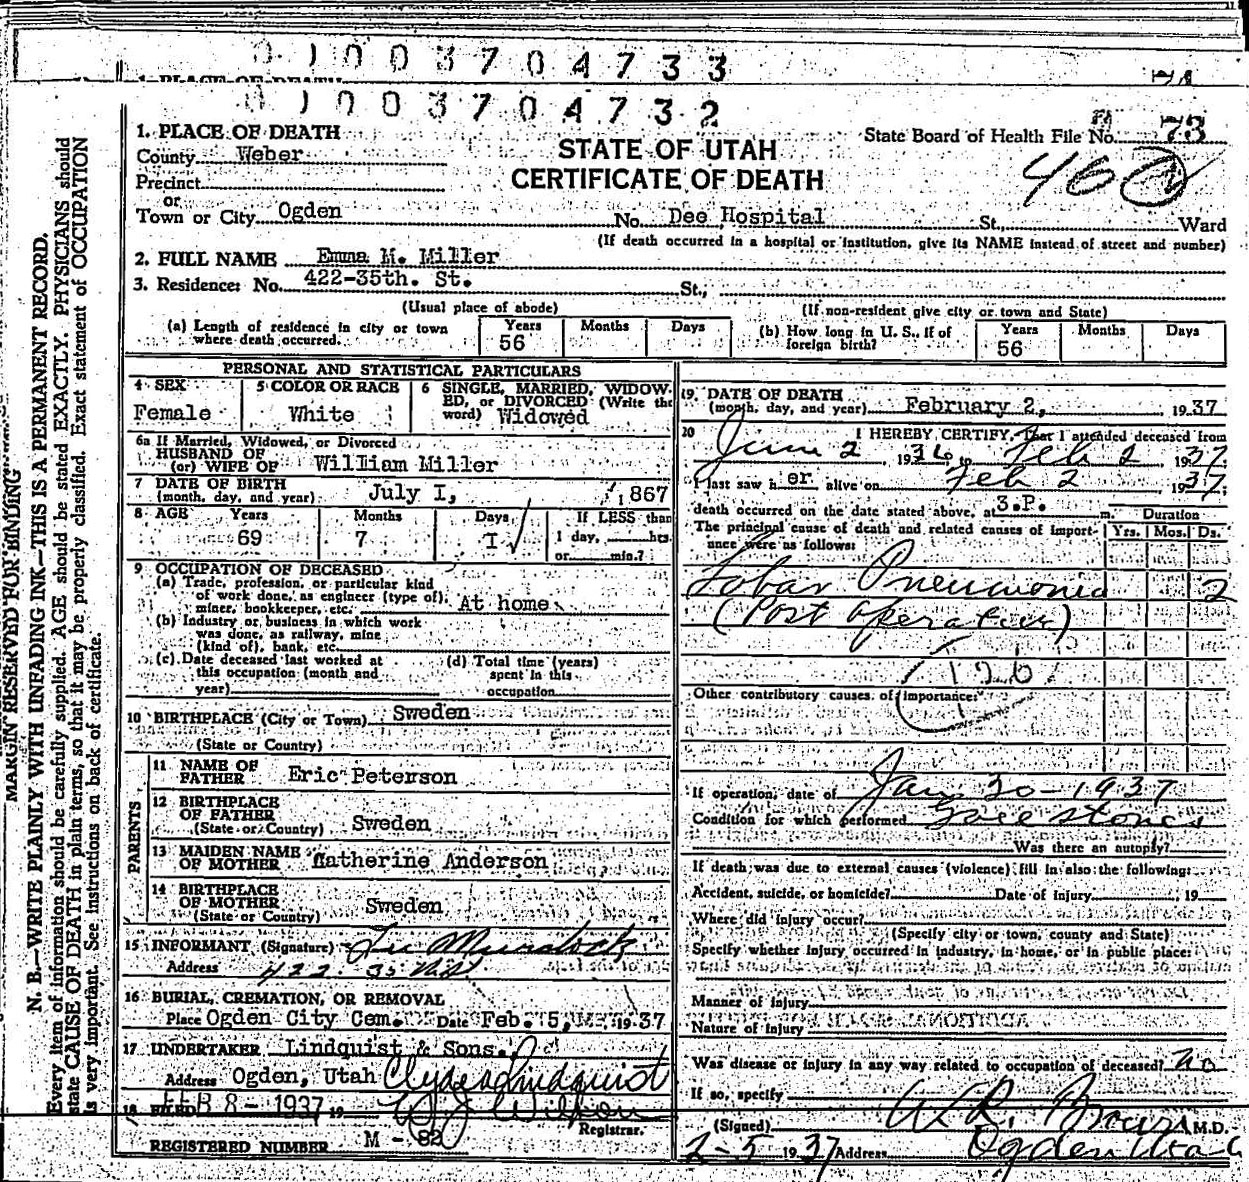 01003704733
1. PLACE OF DEATH
01003704732
1. PLACE OF DEATH
County Weber
Precinct
or
Town or City Ogden No. Dee Hospital St., Ward
STATE OF UTAH
CERTIFICATE OF DEATH
State Board of Health File No. 73
460
(If death occurred in a hospital or institution, give its NAME instead of street and number)
2. FULL NAME Emma M. Miller
3. Residence: No. 422-35th. St. St.,
(Usual place of abode) (If non-resident give city or town and State)
(a) Length of residence in city or town where death occurred. Years 56 Months Days
(b) How long in U. S., if of foreign birth? Years 56 Months Days
PERSONAL AND STATISTICAL PARTICULARS
4 SEX Female
5 COLOR OR RACE White
6 SINGLE, MARRIED, WIDOWED, or DIVORCED (Write the word) Widowed
6a If Married, Widowed, or Divorced
HUSBAND OF
(or) WIFE OF William Miller
7 DATE OF BIRTH
(month, day, and year) July I, 1867
8 AGE Years 69 Months 7 Days I If LESS than
1 day, hrs.
or min.?
9 OCCUPATION OF DECEASED
(a) Trade, profession, or particular kind
of work done, as engineer (type of),
miner, bookkeeper, etc. At home
(b) Industry or business in which work
was done, as railway, mine
(kind of), bank, etc.
(c) Date deceased last worked at
this occupation (month and
year)
(d) Total time (years)
spent in this
occupation
10 BIRTHPLACE (City or Town) Sweden
(State or Country)
PARENTS
11 NAME OF
FATHER Eric Peterson
12 BIRTHPLACE
OF FATHER
(State or Country) Sweden
13 MAIDEN NAME
OF MOTHER Catherine Anderson
14 BIRTHPLACE
OF MOTHER
(State or Country) Sweden
15 INFORMANT (Signature) Murdock
Address 422. 35
16 BURIAL, CREMATION, OR REMOVAL
Place Ogden City Cem. Date Feb. 5, 1937
17 UNDERTAKER Lindquist & Sons.
Address Ogden, Utah Clyde Lindquist
18 FILED FEB 8 - 1937 19
Registrar.
REGISTERED NUMBER M - 82
19. DATE OF DEATH
(month, day, and year) February 2, 1937
20 I HEREBY CERTIFY, That I attended deceased from
June 2 1936 to Feb 2 1937
I last saw h er alive on Feb 2 1937
death occurred on the date stated above, at 3.P. m.
The principal cause of death and related causes of importance were as follows:
Duration
Yrs. Mos. Ds.
Lobar Pneumonia 2
(Post operative)
126
Other contributory causes of importance:
If operation, date of Jan 30 - 1937
Condition for which performed Gall stones
Was there an autopsy?
If death was due to external causes (violence) fill in also the following:
Accident, suicide, or homicide? Date of injury 19
Where did injury occur?
(Specify city or town, county and State)
Specify whether injury occurred in industry, in home, or in public place:
Manner of injury
Nature of injury
Was disease or injury in any way related to occupation of deceased? no
If so, specify
(Signed) W R. Brown M.D.
2-5 1937 Address Ogden Utah
MARGIN RESERVED FOR BINDING
N. B.—WRITE PLAINLY WITH UNFADING INK—THIS IS A PERMANENT RECORD.
Every item of information should be carefully supplied. AGE should be stated EXACTLY. PHYSICIANS should
state CAUSE OF DEATH in plain terms, so that it may be properly classified. Exact statement of OCCUPATION
is very important. See instructions on back of certificate.